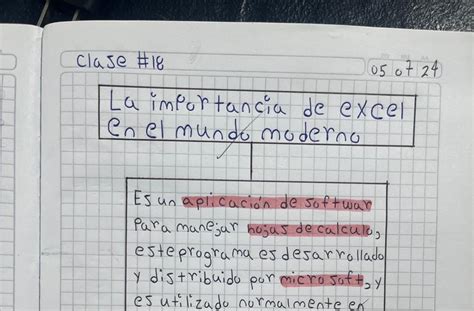 Clase #18
05 07 24
La importancia de excel
en el mundo moderno
Es un aplicación de softwar
para manejar hojas de calculo,
este programa es desarrollado
y distribuido por microsoft, y
es utilizado normalmente en